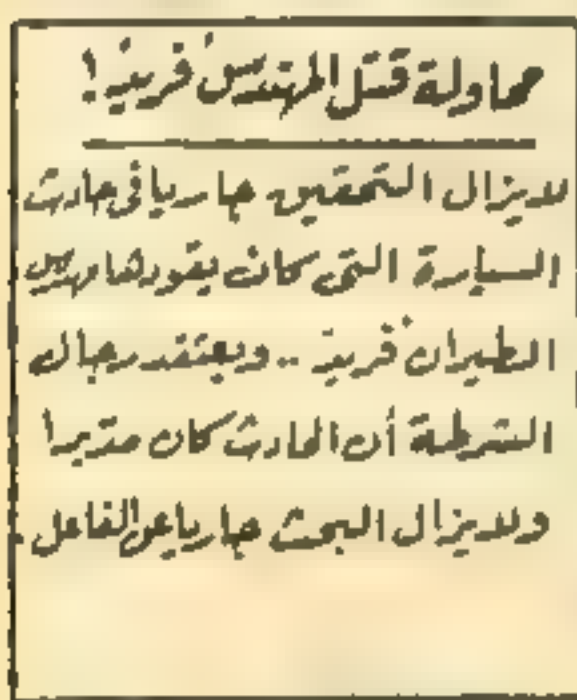 محاولة قتل المهندس "فريد"!
لايزال التحقيق جاريا فى حادث
السيارة التى كان يقودها مهندس
الطيران "فريد" .. ويعتقد رجال
الشرطة أن الحادث كان مدبرا
ولايزال البحث جاريا عن الفاعل .